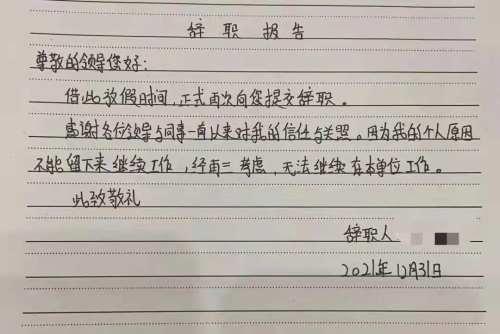 辞职报告
尊敬的领导您好：
借此放假时间，正式再次向您提交辞职。
感谢各位领导与同事一直以来对我的信任与关照。因为我的个人原因
不能留下来继续工作，经再三考虑，无法继续在本单位工作。
此致敬礼
辞职人
2021年12月31日